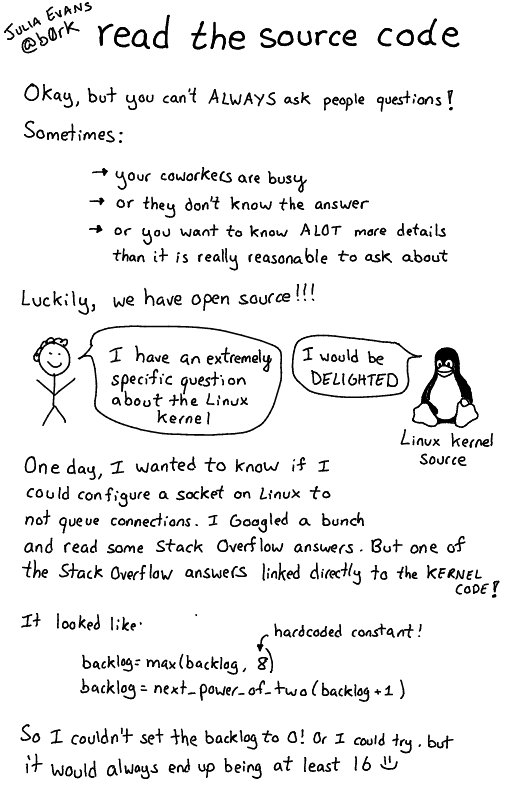 JULIA EVANS
@b0rk
read the source code
Okay, but you can't ALWAYS ask people questions!
Sometimes:
→ your coworkers are busy
→ or they don't know the answer
→ or you want to know ALOT more details
than it is really reasonable to ask about
Luckily, we have open source!!!
I have an extremely
specific question
about the Linux
kernel
I would be
DELIGHTED
Linux kernel
source
One day, I wanted to know if I
could configure a socket on Linux to
not queue connections. I Googled a bunch
and read some Stack Overflow answers. But one of
the Stack Overflow answers linked directly to the KERNEL
CODE!
It looked like:
hardcoded constant!
backlog = max(backlog, 8)
backlog = next_power_of_two(backlog +1)
So I couldn't set the backlog to 0! Or I could try. but
it would always end up being at least 16 :)